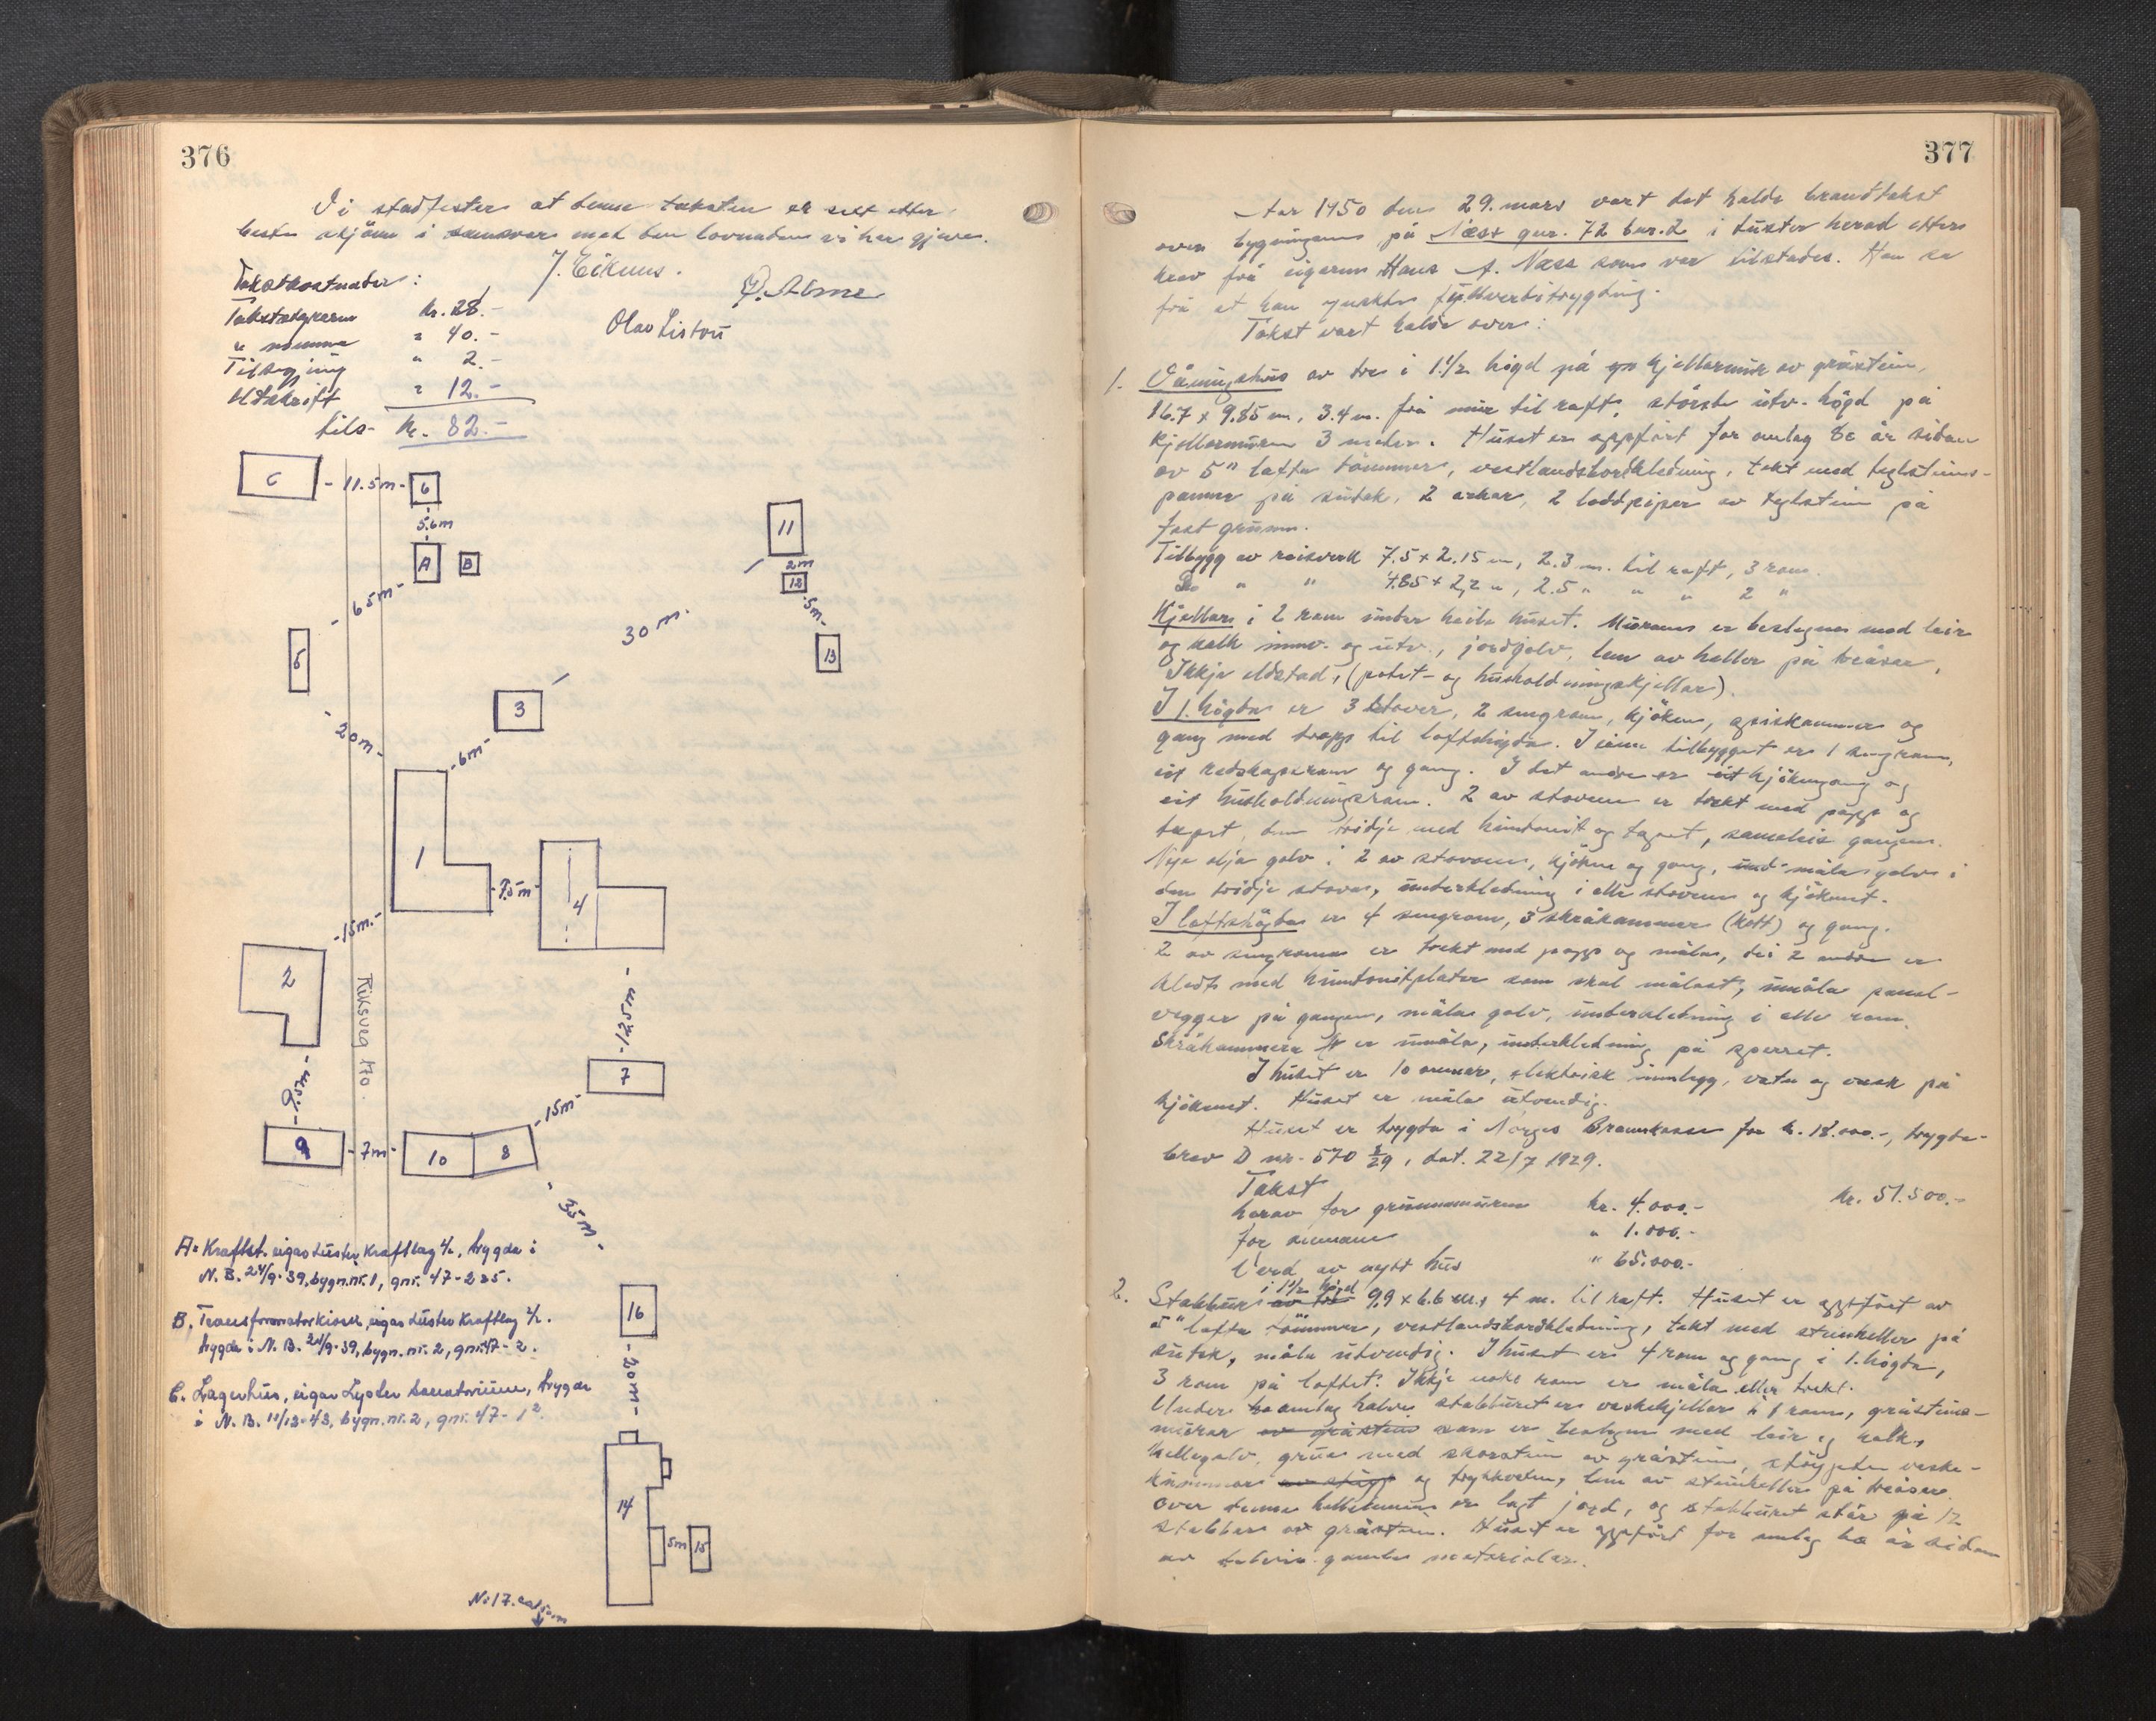 376
Vi stadfester at denne taksten er sett etter
beste skjönn i samsvar med den lovnaden vi har gjeve.
J. Eikum.
Olav Listou
Takstkostnader:
Takstutgreim kr. 28.-
" nemnd " 40.-
Tilsegjing " 2.-
Utskrift " 12.-
tils. kr. 82.-
C - 11.5m - 6
5.6m
A B
- 65m -
5
- 20m -
3
- 6m -
30 m.
11
2m
12
5m
13
1 - 7.5m - 4
- 15m. -
2
Riksveg 170.
- 12.5m -
7
- 9.5m -
- 15m -
9 - 7m - 10 8
- 35 m -
16
- 20m -
14 5m 15
No 17. ca
A = Kraftst. eigar Luster Kraftlag A/L, trygda i
N. B. 24/9-39, bygn.nr. 1, gnr. 47-2 s 5.
B. Transformatorkiosk, eigar Luster Kraftlag A/L.
trygda i N. B. 24/9-39, bygn. nr. 2, gnr. 47-2.
C. Lagerhus, eigar Lyster Sanatorium, trygda
i N. B. 11/12-43, bygn. nr. 2, gnr. 47-1².
377
År 1950 den 29. mars vart det halde brandtakst
over bygningane på Næss gnr. 72 bnr. 2 i Luster herad etter
krav frå eigaren Hans A. Næss som var tilstades. Han sa
frå at han ynskte fullverditrygding.
Takst vart halde over:
1. Våningshus av tre i 1 1/2 högd på kjellarmur av gråstein,
16.7 x 9.85 m, 3.4 m. frå mur til raft, största utv. högd på
kjellarmuren 3 meter. Huset er oppfört for omlag 80 år sidan
av 5" lafta tömmer, vestlandsbordkledning, tekt med teglsteins-
panner på sutak, 2 arkar, 2 loddpiper av teglstein på
fast grunn.
Tilbygg av reisverk 7.5 x 2.15 m, 2.3 m. til raft, 3 rom.
Do " " 4.85 x 2,2 ", 2.5 " " " 2 "
Kjellar i 2 rom under heile huset. Murane er beslegne med leir
og kalk innv. og utv., jordgolv, lem av heller på treåsar,
Ikkje eldstad, (potet- og husholdningskjellar).
I 1. högda er 3 stover, 2 sengrom, kjöken, spiskammer og
gang med trapp til loftshögda. I eine tilbygget er 1 sengrom,
eit redskapsrom og gang. I det andre er kjökengang og
eit husholdningsrom. 2 av stovene er trekt med papp og
tapet, den tridje med huntonit og tapet, sameleis gangen.
Nye olja golv i 2 av stovene, kjöken og gang, måla golv i
den tridje stova, underkledning i alle stovene og kjökenet.
I loftshögda er 4 sengrom, 3 skråkammer (kott) og gang.
2 av sengromma er trekt med papp og måla, dei 2 andre er
kledt med huntonitplater som skal målast, umåla panel-
vegger på gangen, måla golv, underkledning i alle rom.
Skråkammera er umåla, underkledning på sperret.
I huset er 10 omnar, elektrisk innlegg, vatn og vask på
kjökenet. Huset er måla utvendig.
Huset er trygda i Norges Brannkasse for kr. 18.000.-, trygde-
brev D nr. 570 2/29, dat. 22/7 1929.
Takst kr. 51.500.-
herav for grunnmuren kr. 4.000.-
for omnane " 1.000.-
Verd av nytt hus " 65.000.-
2. Stabbur i 1 1/2 högd 9.9 x 6.6 m, 4 m. til raft. Huset er oppfört av
5" lafta tömmer, vestlandsbordkledning, tekt med steinheller på
sutak, måla utvendig. I huset er 4 rom og gang i 1. högda,
3 rom på loftet. Ikkje noko rom er måla eller trekt.
Under omlag halve stabburet er vaskekjellar i 1 rom, gråsteins-
murar av gråstein som er beslegne med leir og kalk,
hellegolv, grue med skorstein av gråstein,
og trykkvatn, lem av steinheller på treåsar.
Over denne er lagt jord, og stabburet står på 12
stabbar av gråstein. Huset er oppfört for omlag år sidan
av delvis gamle materialar.